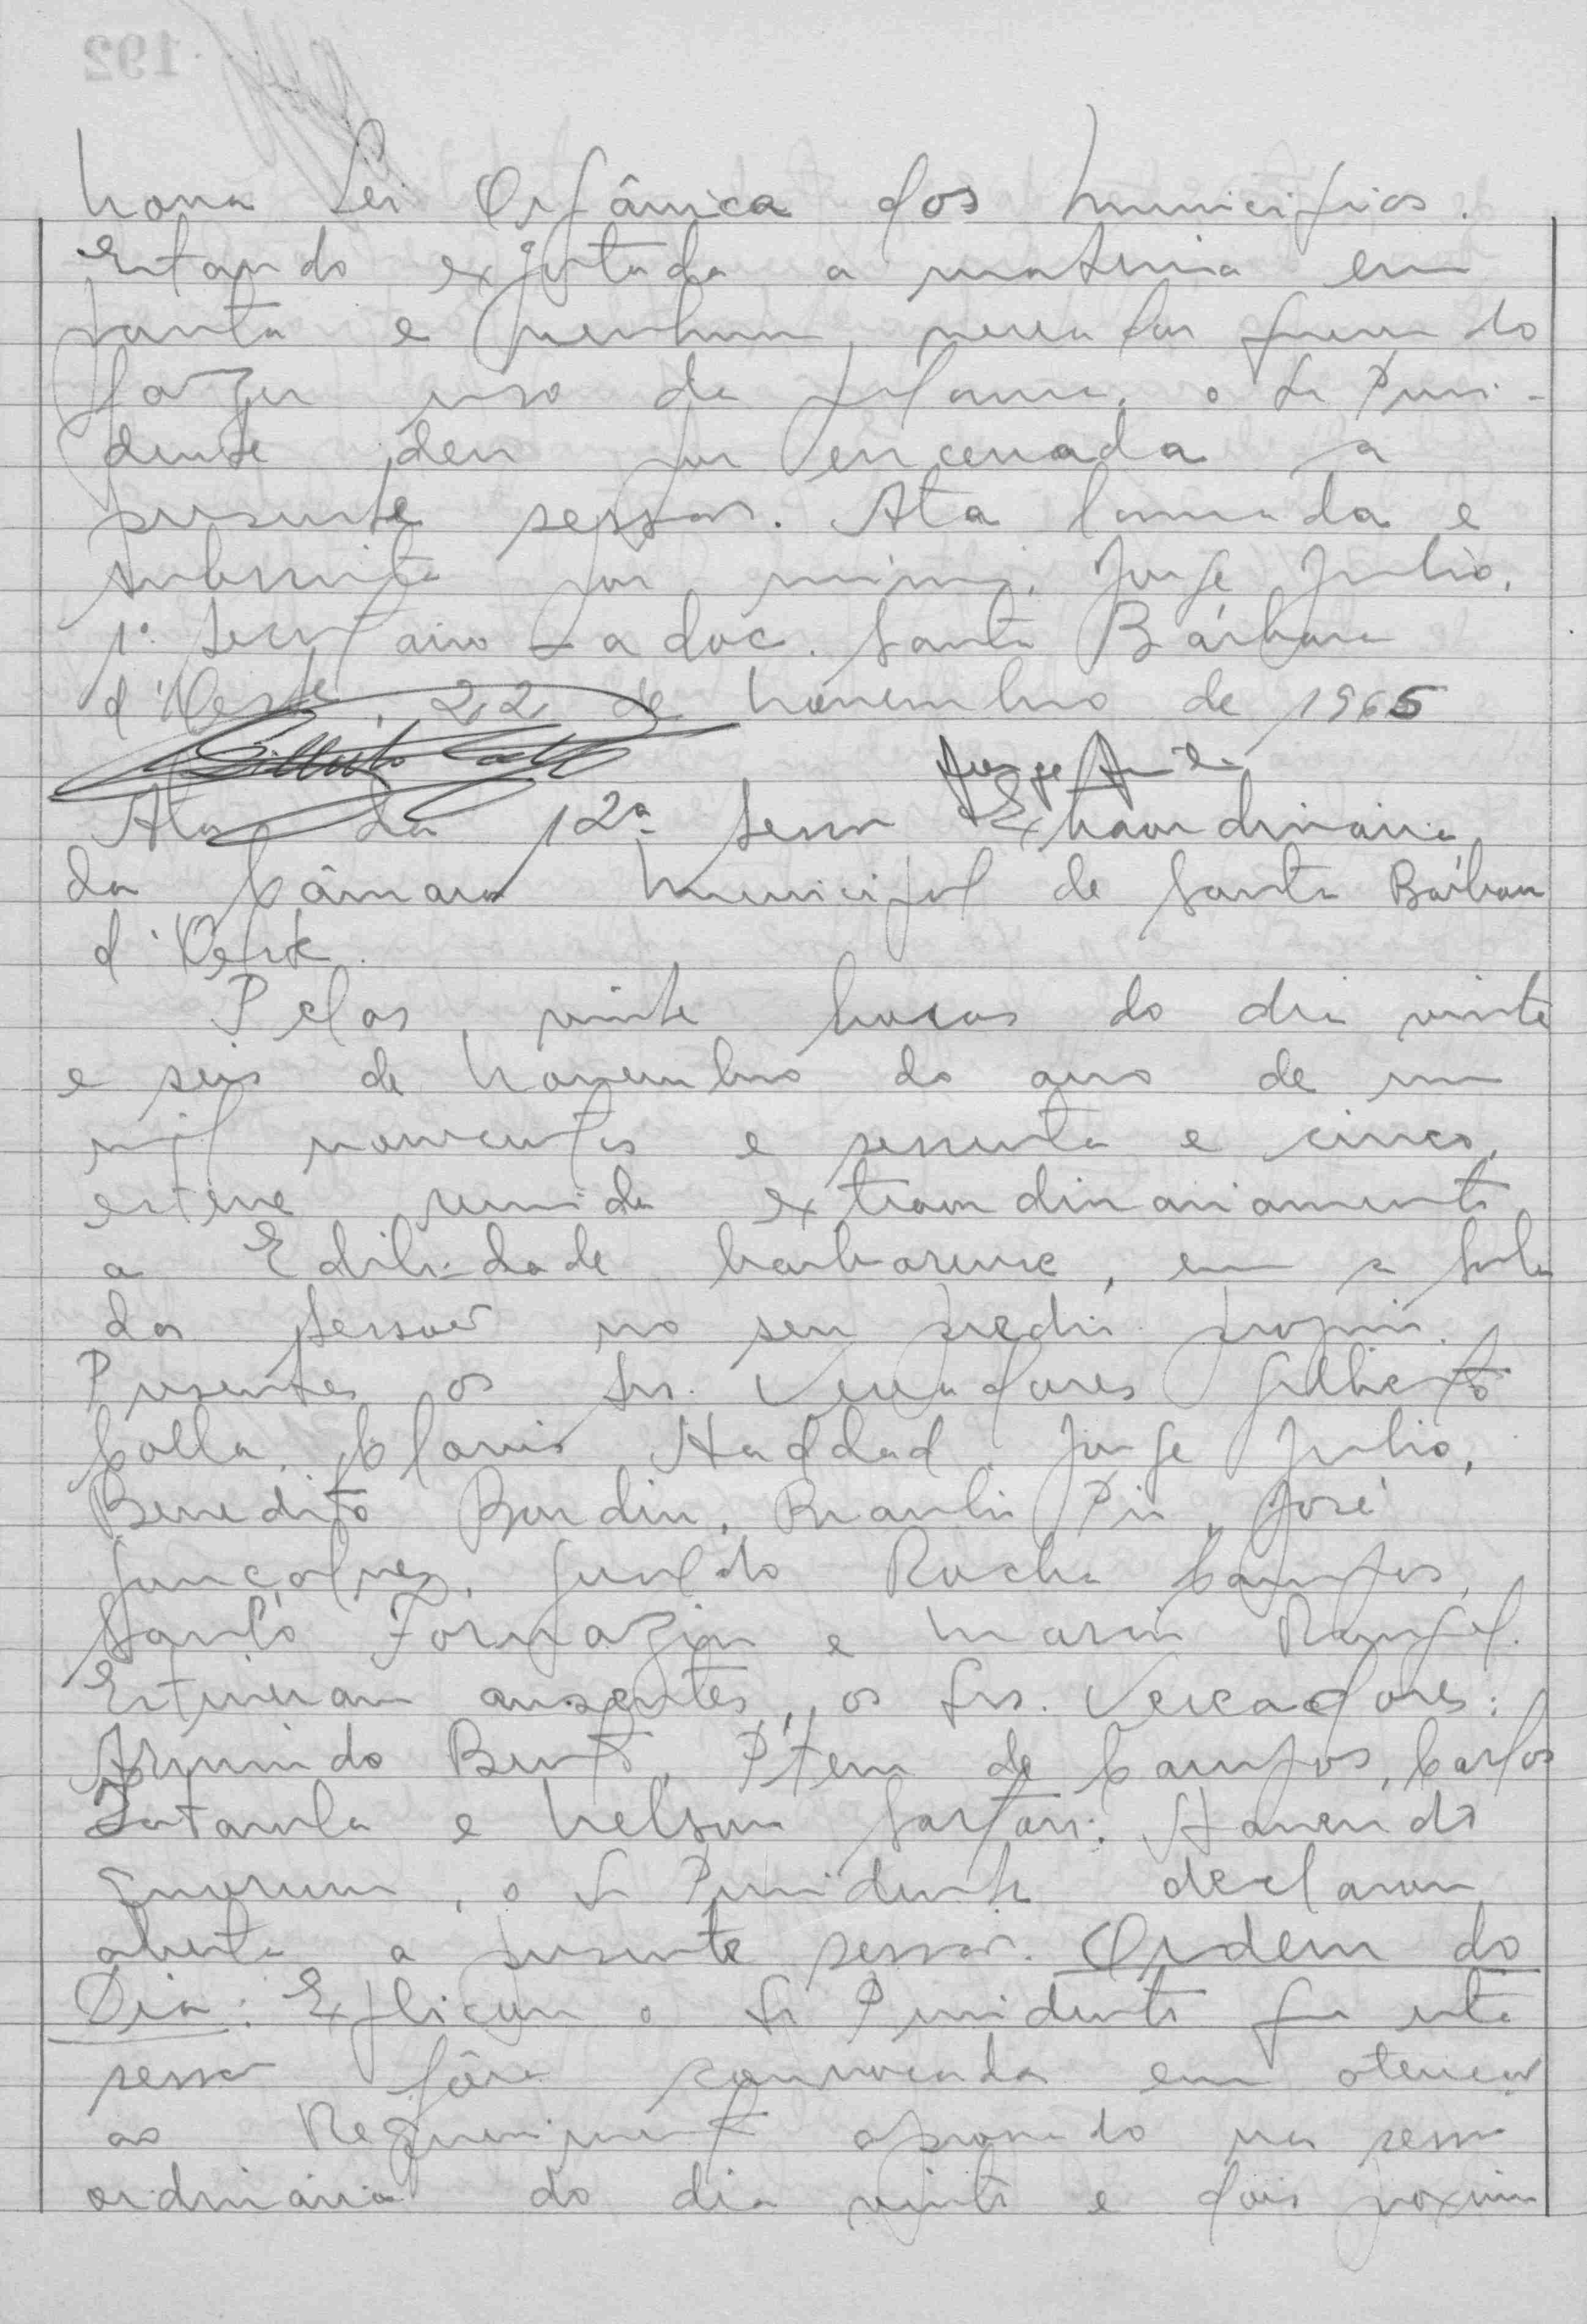 nova Lei Orgânica dos Municipios.
Estando exgotada a materia em
pauta e nenhum vereador querendo
fazer uso da palavra, o Sr Presi-
dente deu por encerrada a
presente sessão. Ata lavrada e
subscrita por mim, Jorge Julio,
1º Secretario - adoc. Santa Bárbara
d'Oeste, 22 de novembro de 1965
Gilberto Colla Jorge Julio
Ata da 12ª Sessão Extraordinaria
da Câmara Municipal de Santa Bárbara
d'Oeste.
Pelas vinte horas do dia vinte
e seis de novembro do ano de um
mil novecentos e sessenta e cinco,
esteve reunida extraordinariamente
a Edilidade barbarense, em a Sala
das Sessões no seu predio proprio.
Presentes os Srs. Vereadores Gilberto
Colla, Clovis Haddad, Jorge Julio,
Benedito Bordin, Braulio Pio, José
Gonçalves, Geraldo Rocha Campos,
Santo Fornazin e Mario Rangel.
Estiveram ausentes, os Srs. Vereadores:
Armindo Bento, de Campos, Carlos
e Nelson Sartori. Havendo
quorum, o Sr Presidente declarou
aberta a presente sessão. Ordem do
Dia: Explicou o Sr Presidente que esta
sessão fôra convocada em atenção
ao Requerimento aprovado na sessão
ordinaria do dia vinte e dois proximo